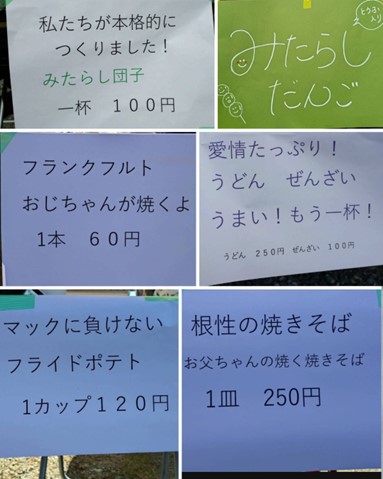 私たちが本格的に
つくりました!
みたらし団子
一杯 100円
とうふ入り
みたらし
だんご
フランクフルト
おじちゃんが焼くよ
1本 60円
愛情たっぷり!
うどん ぜんざい
うまい!もう一杯!
うどん 250円 ぜんざい 100円
マックに負けない
フライドポテト
1カップ120円
根性の焼きそば
お父ちゃんの焼く焼きそば
1皿 250円